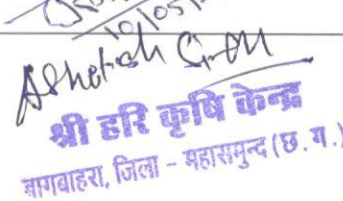 10/05/
Ashutosh
श्री हरि कृषि केन्द्र
बागबाहरा, जिला - महासमुन्द (छ. ग.)